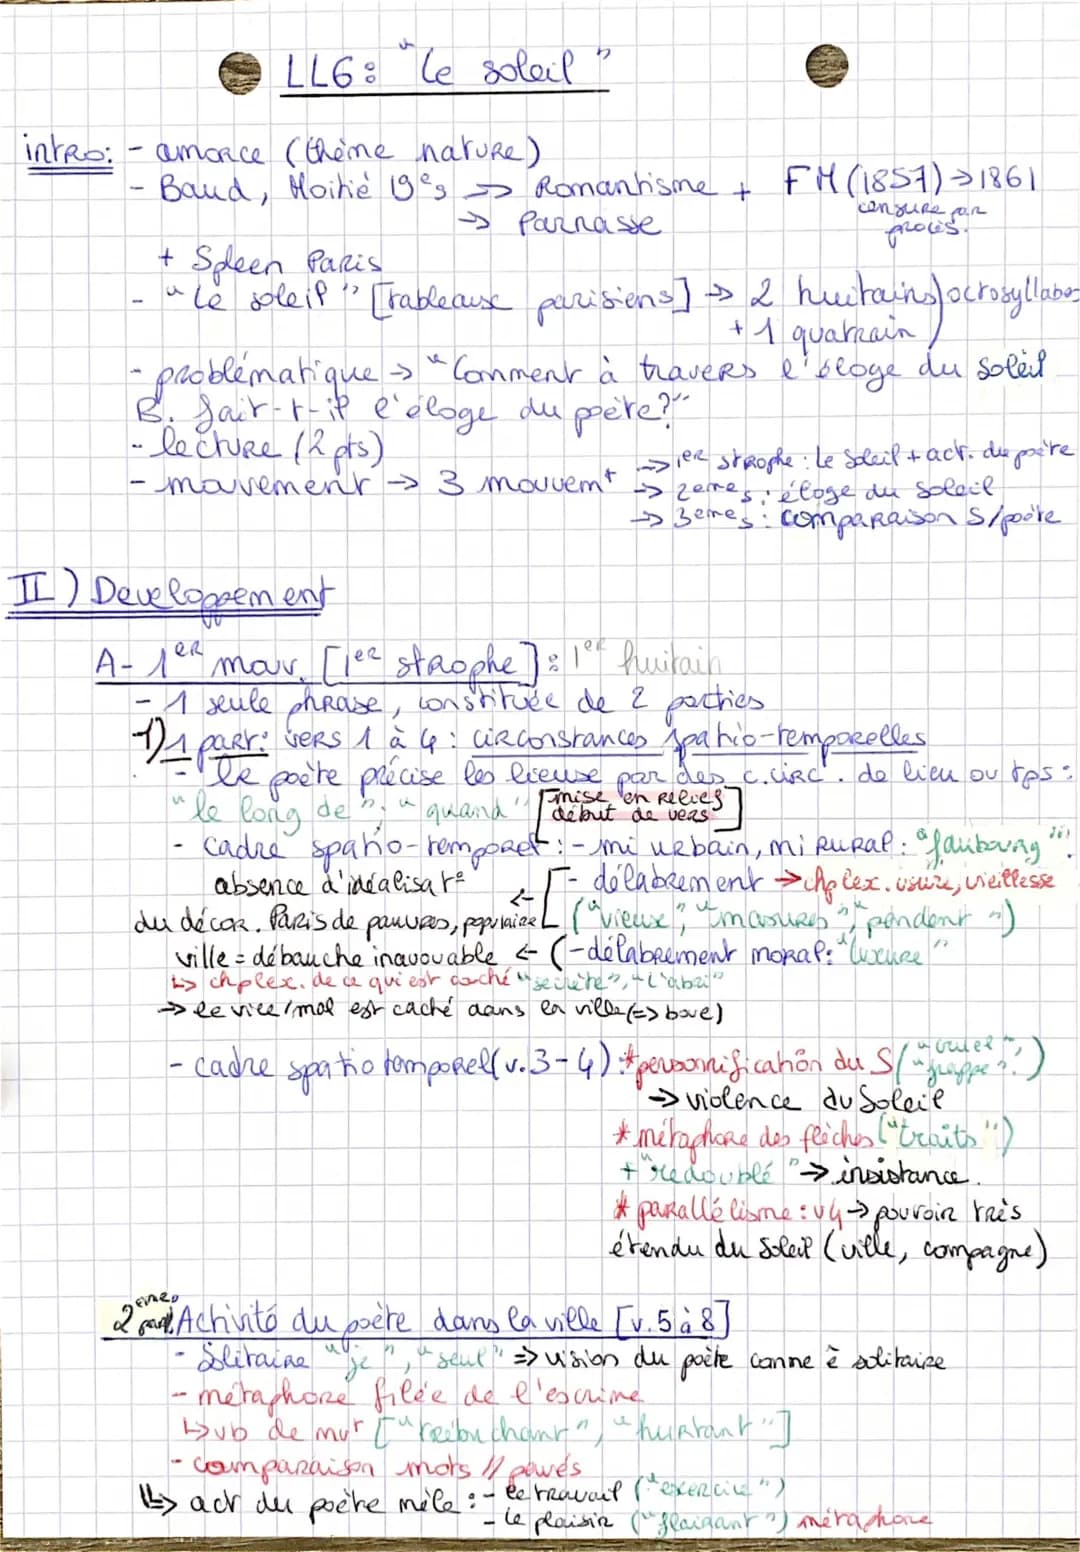 LL6 : "Le soleil"
intro: - amorce (thème nature)
- Baud, Moitié 19e s → Romantisme + FM (1857) → 1861
→ Parnasse censure par procès.
+ Spleen Paris
- "Le soleil" [tableaux parisiens] → 2 huitains) octosyllabes
+ 1 quatrain
- problématique → "Comment à travers l'éloge du soleil
B. fait-t-il l'éloge du poète?"
- lecture (2 pts)
- mouvement → 3 mouvemt → 1er strophe : le soleil + act. du poète
→ 2eme s : éloge du soleil
→ 3eme s : comparaison S/poète
II) Developpement
A- 1er mouv. [1er strophe] : 1er huitain
- 1 seule phrase, constituée de 2 parties
1) 1 part: vers 1 à 4 : circonstances spatio-temporelles
- le poète précise les lieux par des c. circ. de lieu ou tps :
"le long de", "quand" [mise en relief
début de vers]
- cadre spatio-temporel : - mi urbain, mi rural : "faubourg"
absence d'idéalisat° ← [- délabrement → chp lex. usure, vieillesse
du décor. Paris de pauvres, populaire ("vieux", "masures", "pendent")
ville = débauche inavouable ← (- délabrement moral : "luxure"
↳ chp lex. de ce qui est caché "secrète", "l'abri"
→ le vice/mal est caché dans la ville (=> boue)
- cadre spatio temporel (v.3-4) : * personnification du S ("cruel", "frappe")
→ violence du Soleil
* métaphore des flèches ("traits")
+ "redoublé" → insistance.
* parallélisme : v4 → pouvoir très
étendu du Soleil (ville, compagne)
2eme part Activité du poète dans la ville [v.5 à 8]
- Solitaire "je", "seul" => vision du poète comme ê solitaire
- métaphore filée de l'escrime
↳ vb de mvt ["trébuchant", "heurtant"]
- comparaison mots // pavés
↳ act du poète mêle : - le travail ("exercice")
- le plaisir ("flairant") métaphore